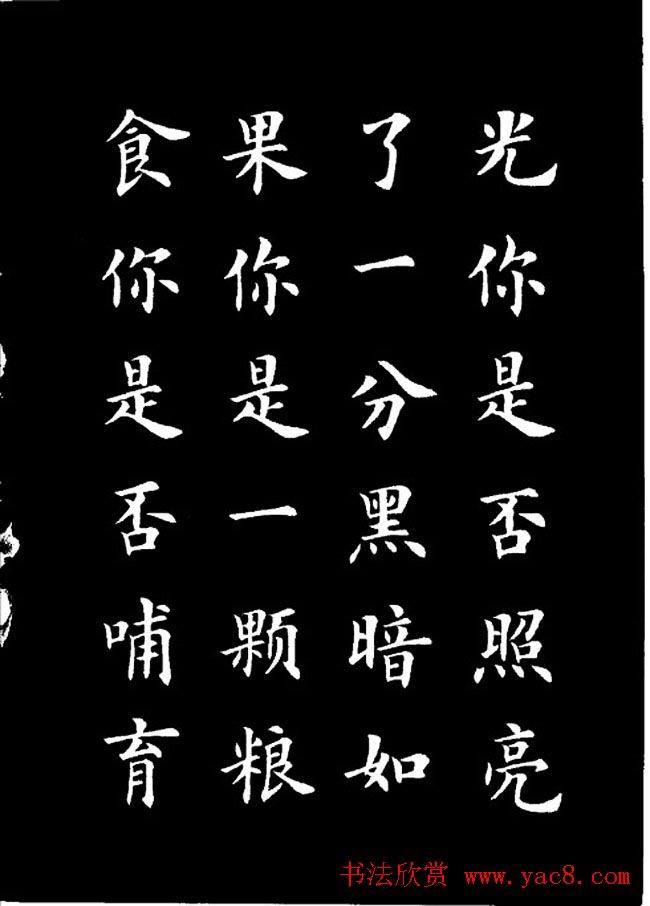 光你是否照亮
了一分黑暗如
果你是一颗粮
食你是否哺育
书法欣赏 www.yac8.com